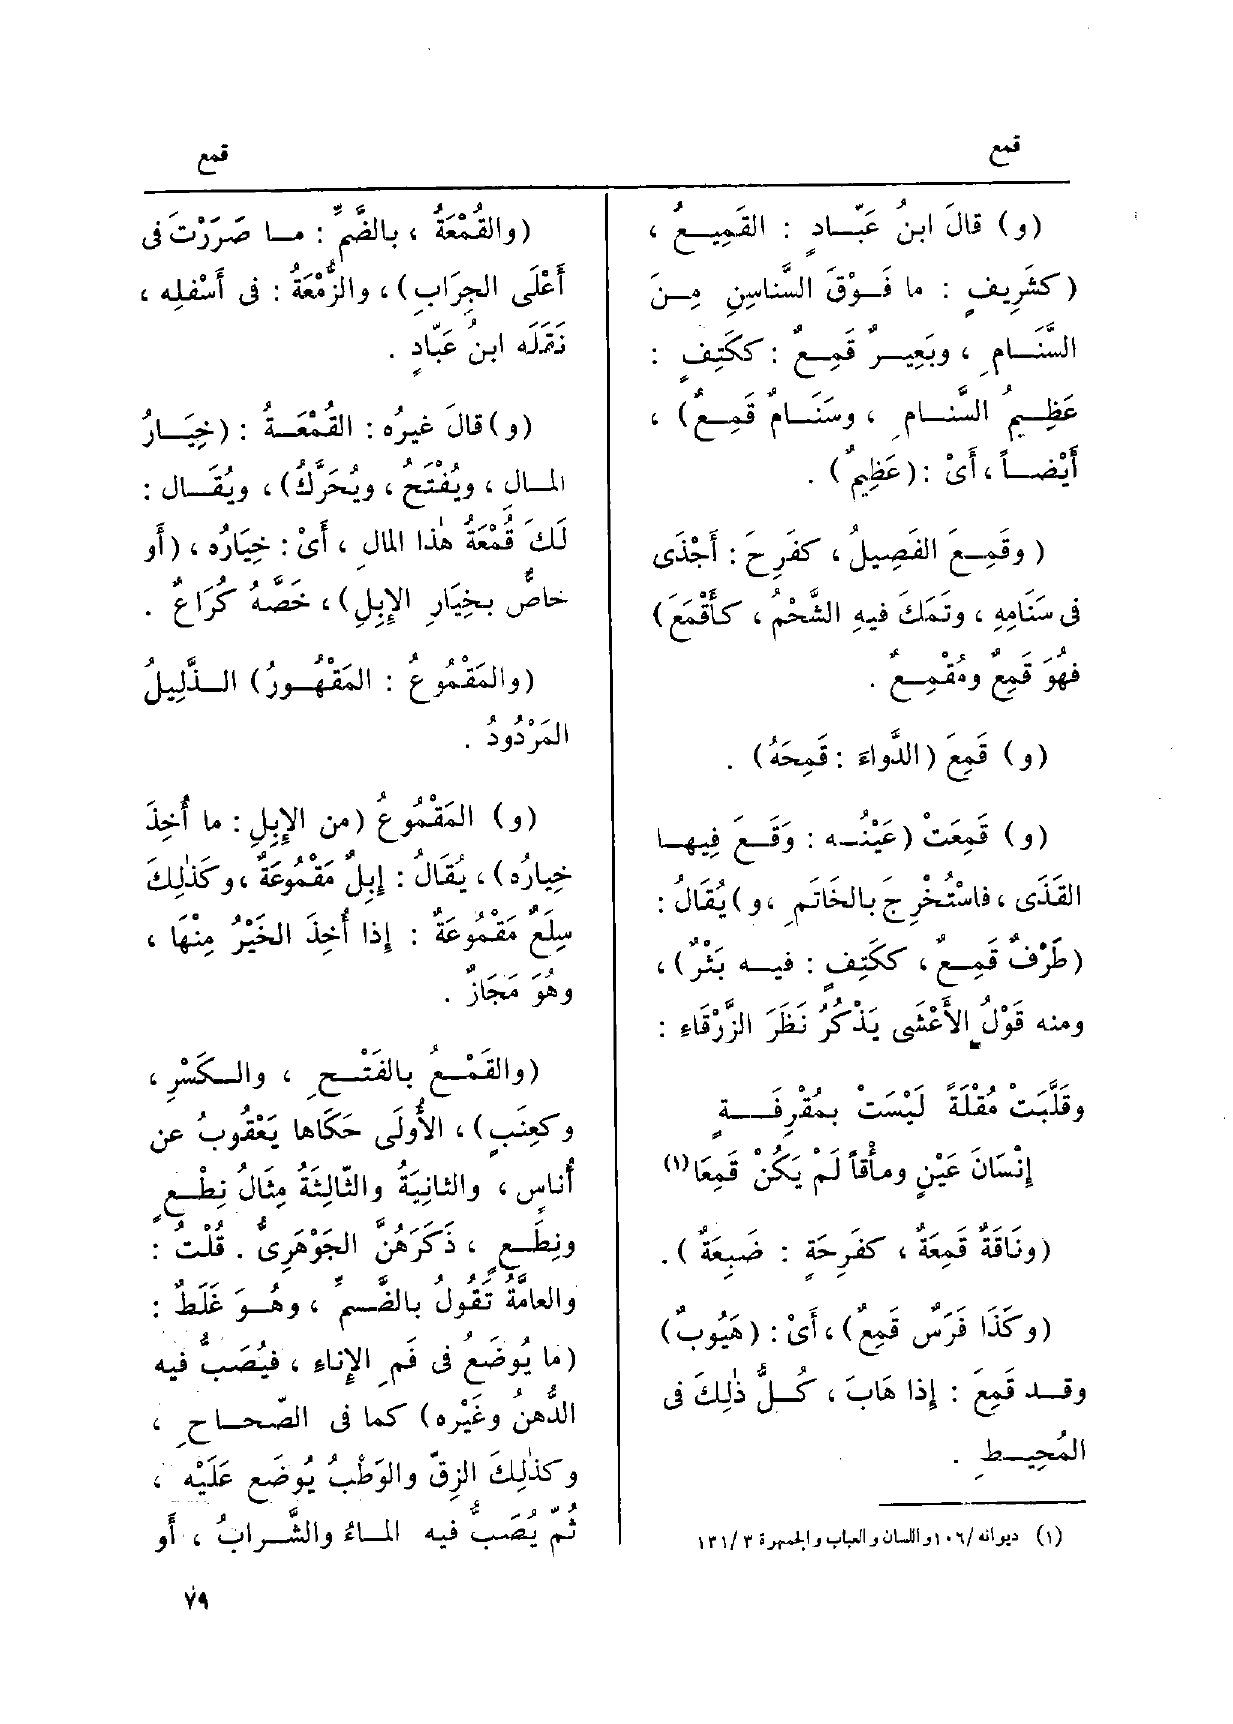 قمع
قمع
(و) قالَ ابنُ عَبّــادٍ : القَمِيــعُ ،
(كشَرِيفٍ : ما فَــوْقَ السَّناسِنِ مِــنَ
السَّنَــامِ ، وبَعِيــرٌ قَمِــعٌ : ككَتِفٍ :
عَظِــيمُ السَّنــامِ ، وسَنَــامٌ قَمِــعٌ) ،
أيْضــاً ، أَىْ : (عَظِيمٌ) .
( وقَمِــعَ الفَصِيلُ ، كفَرِحَ : أَجْذَى
فى سَنَامِهِ ، وتَمَكَ فيهِ الشَّحْمُ ، كأَقْمَعَ)
فهُوَ قَمِعٌ ومُقْمِــعٌ .
(و) قَمِعَ (الدَّواءَ : قَمِحَهُ) .
(و) قَمِعَتْ (عَيْنُــه : وَقَــعَ فِيهــا
القَذَى ، فاسْتُخْرِجَ بالخَاتَمِ ، و) يُقَالُ :
(طَرْفٌ قَمِــعٌ ، ككَتِفٍ : فيــه بَثْرٌ) ،
ومنه قَوْلُ الأَعْشَى يَذْكُرُ نَظَرَ الزَّرْقاءِ :
وقَلَّبَتْ مُقْلَةً لَيْسَتْ بمُقْرِفَــــةٍ
إِنْسَانَ عَيْنٍ ومأْقاً لَمْ يَكُنْ قَمِعَا(١)
(ونَاقَةٌ قَمِعَةٌ ، كفَرِحَةٍ : ضَبِعَةٌ ) .
(وكَذَا فَرَسٌ قَمِعٌ) ، أَىْ : (هَيُوبٌ)
وقــد قَمِعَ : إذا هَابَ ، كُــلُّ ذٰلِكَ فى
المُحِيــطِ .
(١) ديوانه /١٠٦ واللسان والعباب والجمهرة ٣ /١٣١
(والقُمْعَةُ ، بالضَّمِّ : مــا صَرَرْتَ فى
أَعْلَى الجِرَابِ) ، والزُّمْعَةُ : فى أَسْفَلِه ،
نَقَلَه ابنُ عَبّادٍ .
(و) قالَ غيرُه : القُمْعَــةُ : (خِيَــارُ
المــالِ ، ويُفْتَح ، ويُحَرَّكُ) ، ويُقَــال :
لَكَ قُمْعَةُ هٰذا المَالِ ، أَىْ : خِيَارُه ، (أو
خاصٌّ بخِيَارِ الإِبِلِ) ، خَصَّهُ كُرَاعٌ .
(والمَقْمُوعُ : المَقْهُــورُ) الــذَّلِيلُ
المَرْدُودُ .
(و) المَقْمُوعُ (من الإِبِلِ : ما أُخِذَ
خِيارُه) ، يُقَالُ : إِبِلٌ مَقْمُوعَةٌ ، وكَذٰلِكَ
سِلَعٌ مَقْمُوعَةٌ : إذا أُخِذَ الخَيْرُ مِنْهَا ،
وهُوَ مَجَازٌ .
(والقَمْعُ بالفَتْــحِ ، والــكَسْرِ ،
وكعِنَبٍ) ، الأُولَى حَكَاها يَعْقُوبُ عن
أُناسٍ ، والثانِيَةُ والثّالِثَةُ مِثَالُ نِطْــعٍ
ونِطَــعٍ ، ذَكَرَهُنَّ الجَوْهَرِىُّ . قُلْتُ :
والعامَّةُ تَقُولُ بالضَّــمِّ ، وهُــوَ غَلَطٌ :
(ما يُوضَعُ فى فَمِ الإِناءِ ، فيُصَبُّ فيه
الدُّهنُ وغَيْرُه) كما فى الصّحــاحِ ،
وكذٰلِكَ الزِقُّ والوَطْبُ يُوضَع عَلَيْه ،
ثُمّ يُصَبُّ فيه المــاءُ والشَّــرابُ ، أو
٧٩